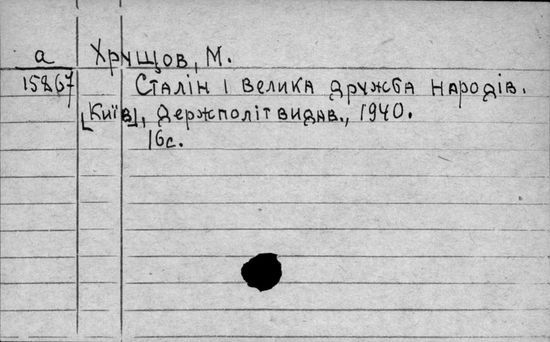 а Хрущов, М.
15267 Сталін і велика дружба народів.
[Київ], Держполітвидав., 1940.
16с.